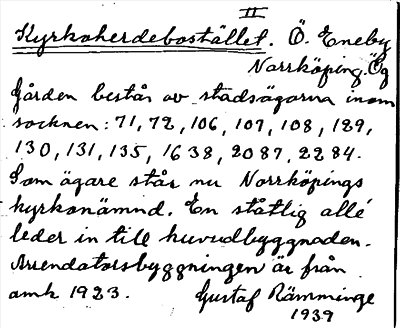 II
Kyrkoherdebostället. Ö. Eneby
Norrköping. Ög
Gården består av stadsägorna inom
socknen: 71, 72, 106, 107, 108, 129,
130, 131, 135, 1638, 2087, 2284.
Som ägare står nu Norrköpings
kyrkonämnd. En ståtlig allé
leder in till huvudbyggnaden.
Arrendatorsbyggningen är från
omk 1923. Gustaf Rämminge
1939